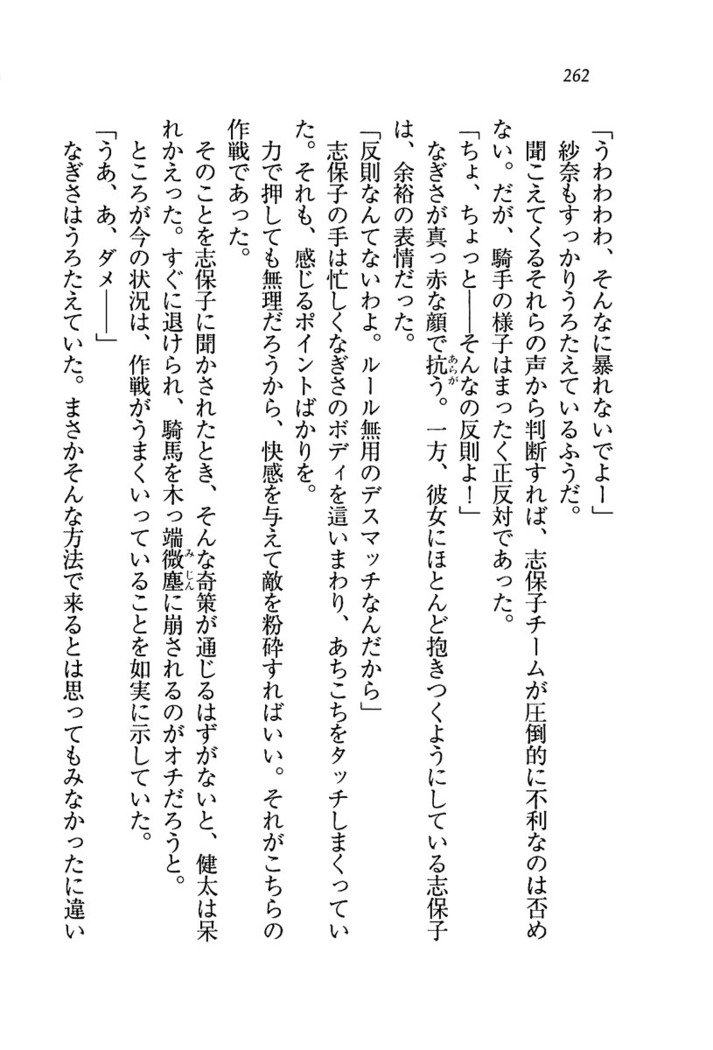 262
「うわわわわ、そんなに暴れないでよー」
紗奈もすっかりうろたえているふうだ。
聞こえてくるそれらの声から判断すれば、志保子チームが圧倒的に不利なのは否め
ない。だが、騎手の様子はまったく正反対であった。
「ちょ、ちょっと――そんなの反則よ！」
なぎさが真っ赤な顔で抗う。一方、彼女にほとんど抱きつくようにしている志保子
は、余裕の表情だった。
「反則なんてないわよ。ルール無用のデスマッチなんだから」
志保子の手は忙しくなぎさのボディを這いまわり、あちこちをタッチしまくってい
た。それも、感じるポイントばかりを。
力で押しても無理だろうから、快感を与えて敵を粉砕すればいい。それがこちらの
作戦であった。
そのことを志保子に聞かされたとき、そんな奇策が通じるはずがないと、健太は呆
れかえった。すぐに退けられ、騎馬を木っ端微塵に崩されるのがオチだろうと。
ところが今の状況は、作戦がうまくいっていることを如実に示していた。
「うあ、あ、ダメ――」
なぎさはうろたえていた。まさかそんな方法で来るとは思ってもみなかったに違い